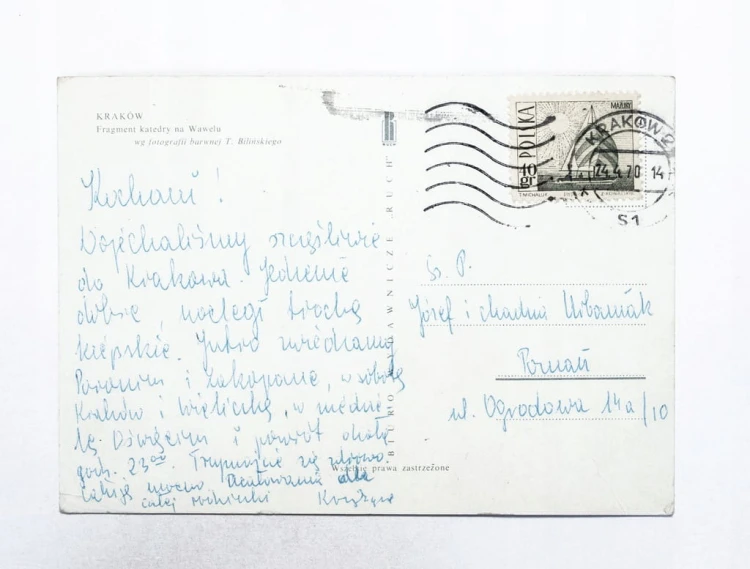 KRAKÓW
Fragment katedry na Wawelu
wg fotografii barwnej T. Bilińskiego
Kochani!
Dojechaliśmy szczęśliwie
do Krakowa. Jedzenie
dobre, noclegi trochę
kiepskie. Jutro zwiedzamy
Poronin i Zakopane, w sobotę
Kraków i Wieliczkę, w niedzie-
lę Oświęcim i powrót około
godz. 23⁰⁰. Trzymajcie się zdrowo.
Całuję mocno. Ucałowania dla
całej rodzinki
BIURO WYDAWNICZE RUCH
Wszelkie prawa zastrzeżone
POLSKA
MAZURY
40 gr
KRAKÓW 2
24.4.70 14
S1
Sz. P.
Józef i Urbaniak
Poznań
ul. Ogrodowa 14a/10